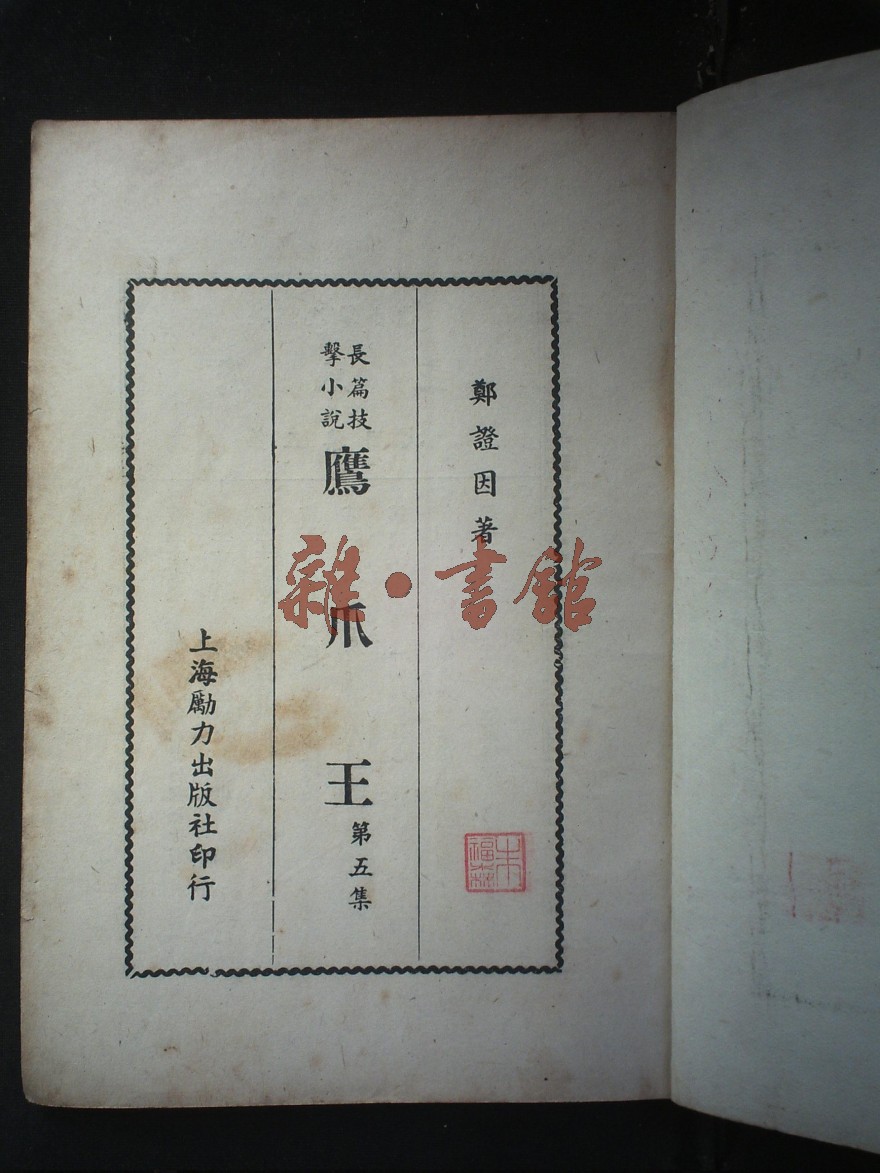 鄭證因著
長篇技
擊小說
鷹爪王
第五集
上海勵力出版社印行
雜·書館